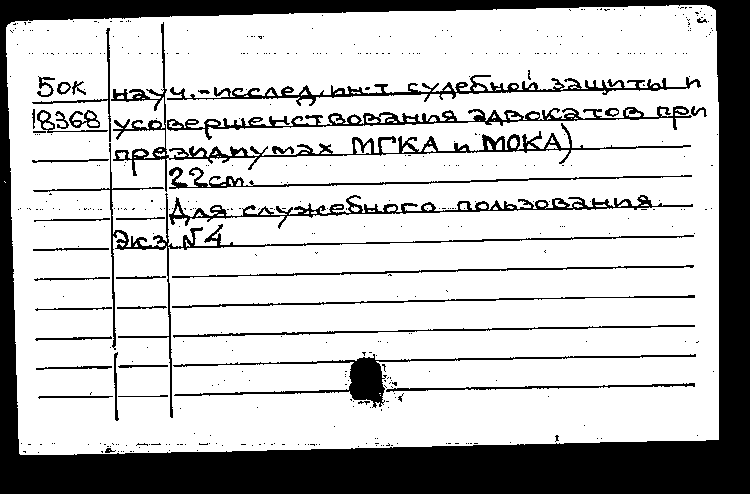 50к науч.-исслед. ин-т судебной защиты и
18368 усовершенствования адвокатов при
президиумах МГКА и МОКА).
22см.
Для служебного пользования.
Экз. №4.